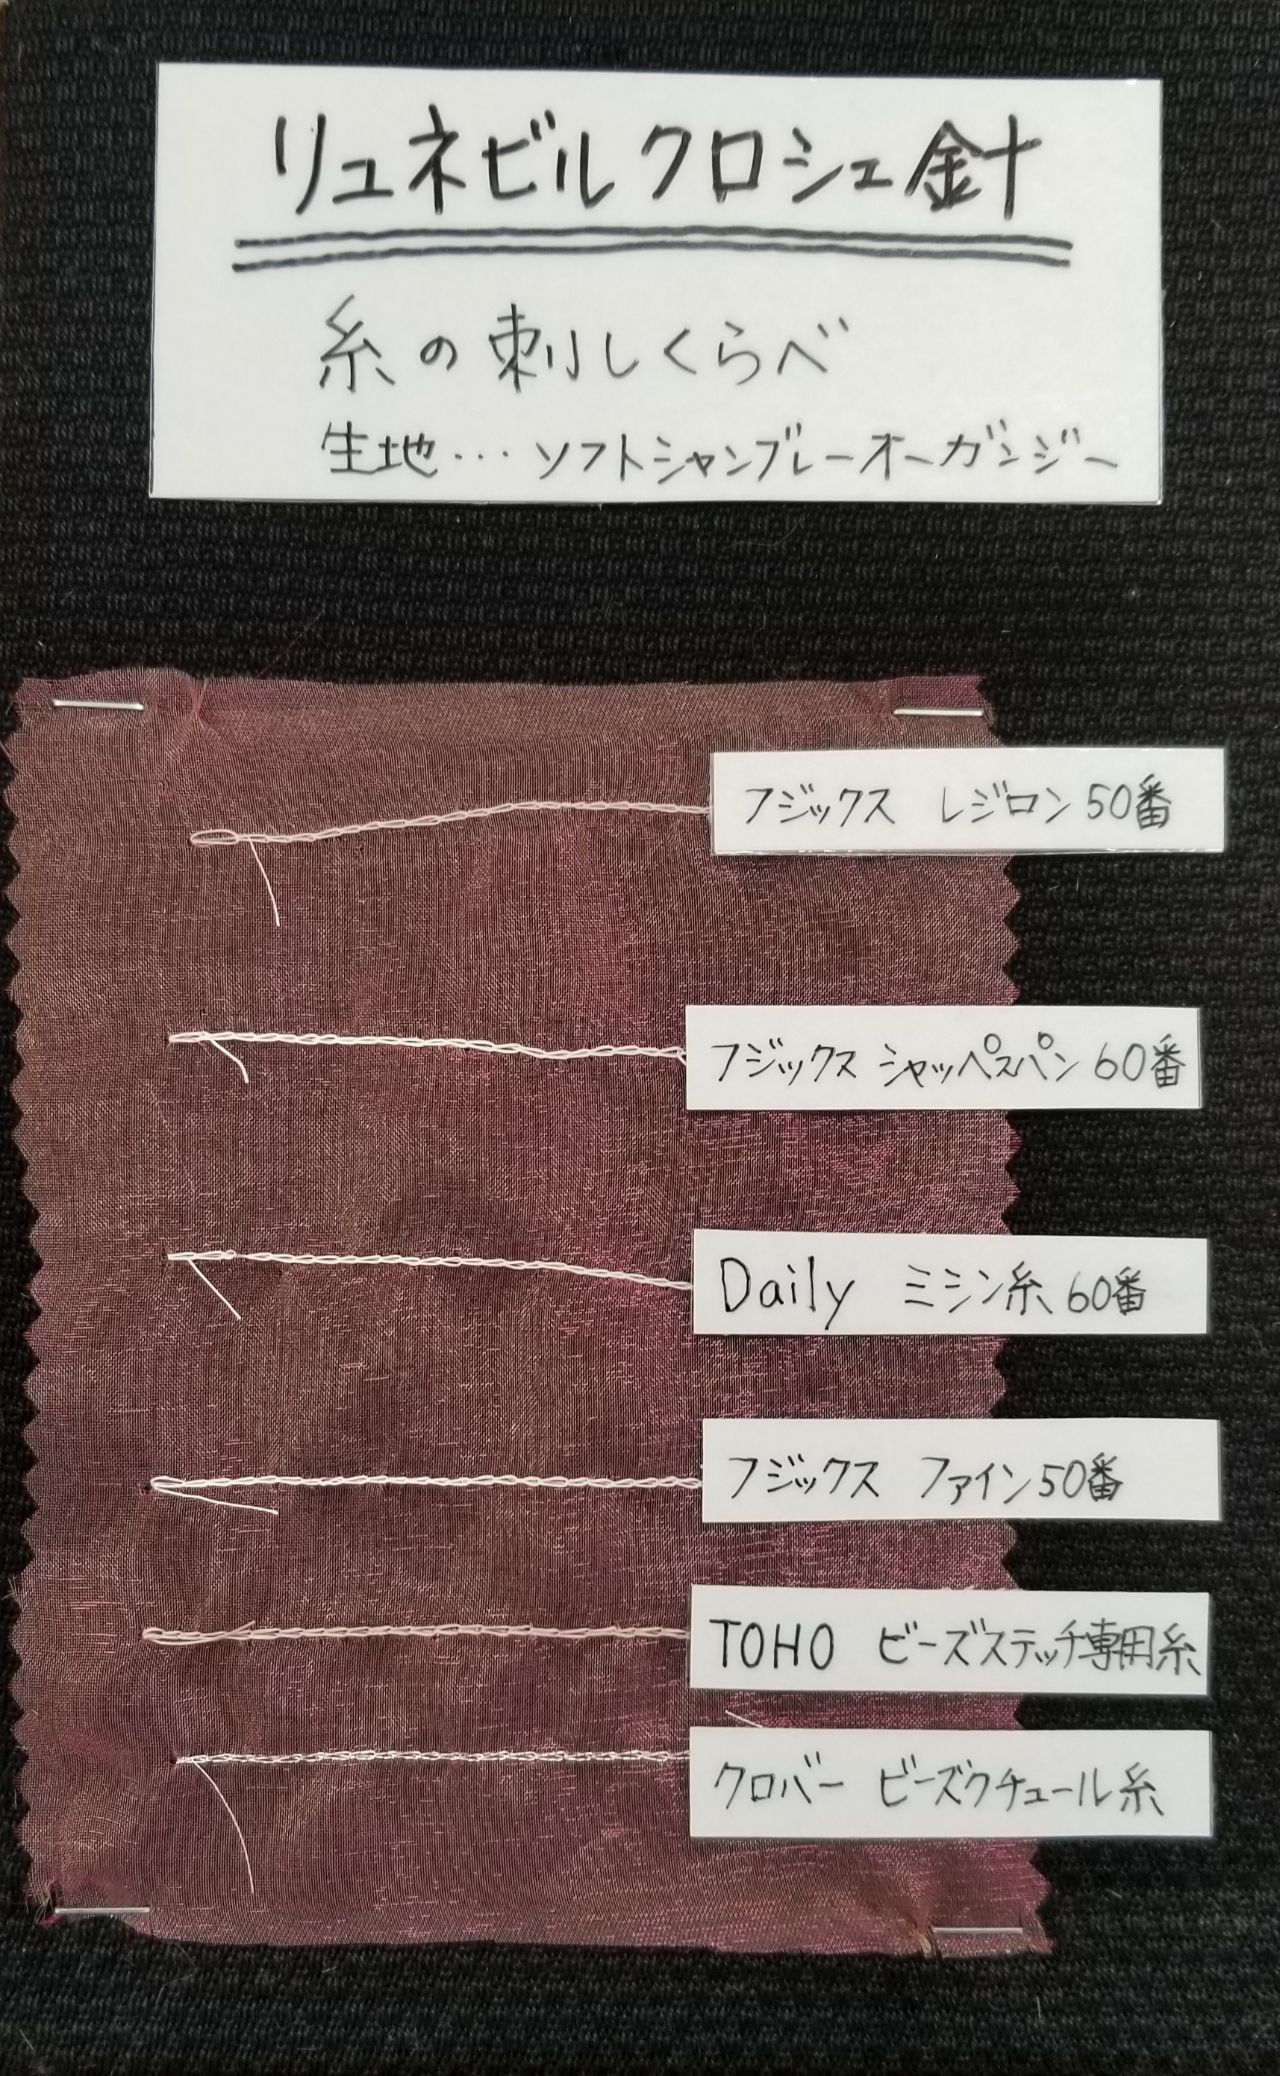 リュネビルクロシェ針
糸の刺しくらべ
生地…ソフトシャンブレーオーガンジー
フジックス レジロン50番
フジックス シャッペスパン 60番
Daily ミシン糸 60番
フジックス ファイン50番
TOHO ビーズステッチ専用糸
クロバー ビーズクチュール糸